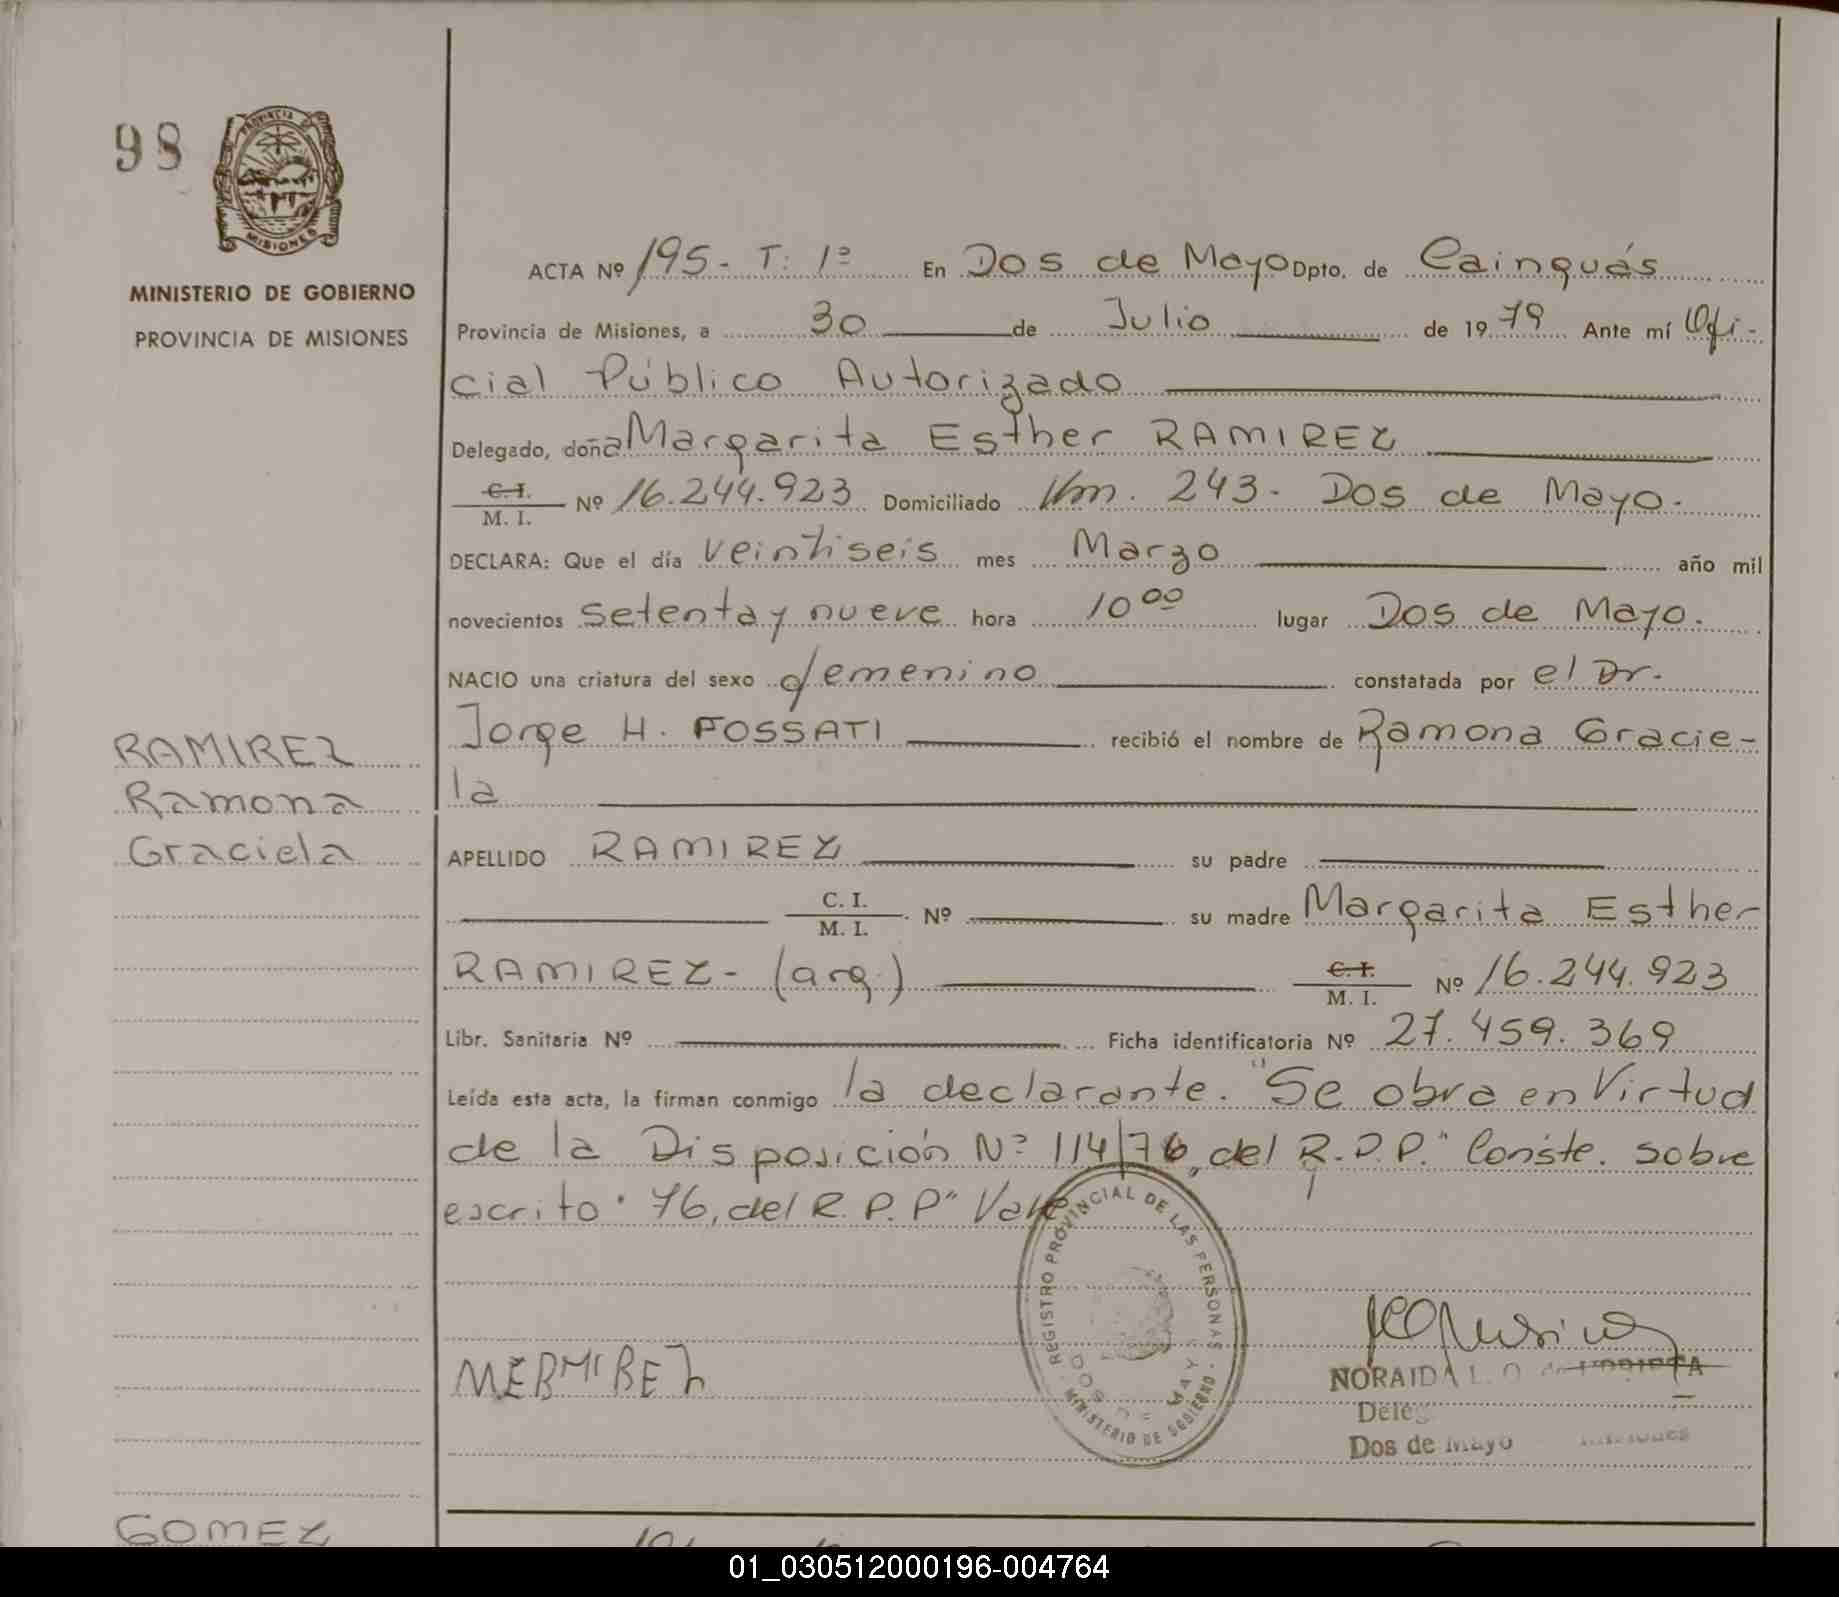 98
PROVINCIA D
MISIONES
MINISTERIO DE GOBIERNO
PROVINCIA DE MISIONES
ACTA Nº 195- T: 1º En Dos de Mayo Dpto. de Cainguás
Provincia de Misiones, a 30 de Julio de 19 79 Ante mí Ofi-
cial Público Autorizado
Delegado, doña Margarita Esther RAMIREZ
C.I.
M. I. Nº 16.244.923 Domiciliado Km. 243- Dos de Mayo.
DECLARA: Que el día veintiseis mes Marzo año mil
novecientos setenta y nueve hora 10 00 lugar Dos de Mayo.
NACIO una criatura del sexo femenino constatada por el Dr.
Jorge H. FOSSATI recibió el nombre de Ramona Gracie-
la
RAMIREZ
Ramona
Graciela
APELLIDO RAMIREZ su padre
C. I.
M. I. Nº su madre Margarita Esther
RAMIREZ- (arg.) C.I.
M. I. Nº 16.244.923
Libr. Sanitaria Nº Ficha identificatoria Nº 27.459.369
Leída esta acta, la firman conmigo la declarante. "Se obra en Virtud
de la Disposición Nº 114/76, del R.P.P." Conste. Sobre
escrito "76, del R.P.P" Vale
REGISTRO PROVINCIAL DE LAS PERSONAS
MINISTERIO DE GOBIERNO
DOS DE MAYO
NORAIDA L. O. de
Dos de Mayo Misiones
GOMEZ
01_030512000196-004764